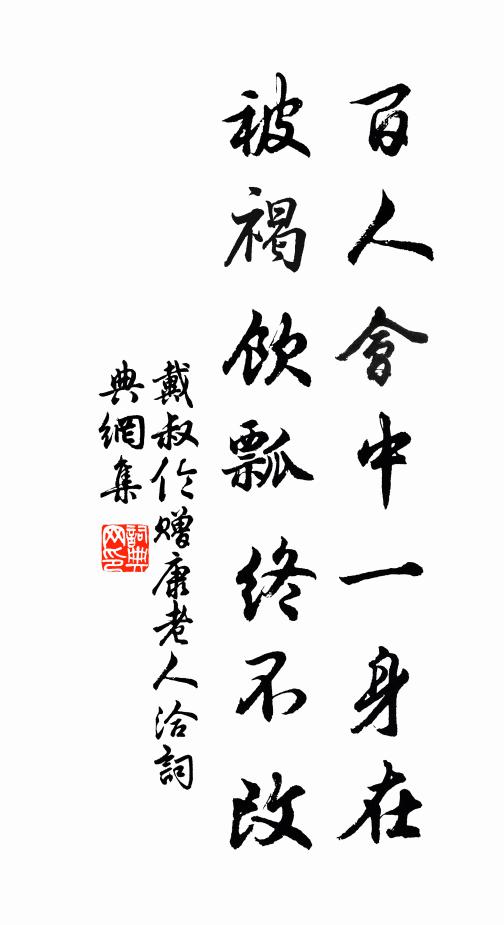 百人會中一身在
被褐飲瓢終不改
戴叔伦赠康老人洽詞
典網集
詞典
网印